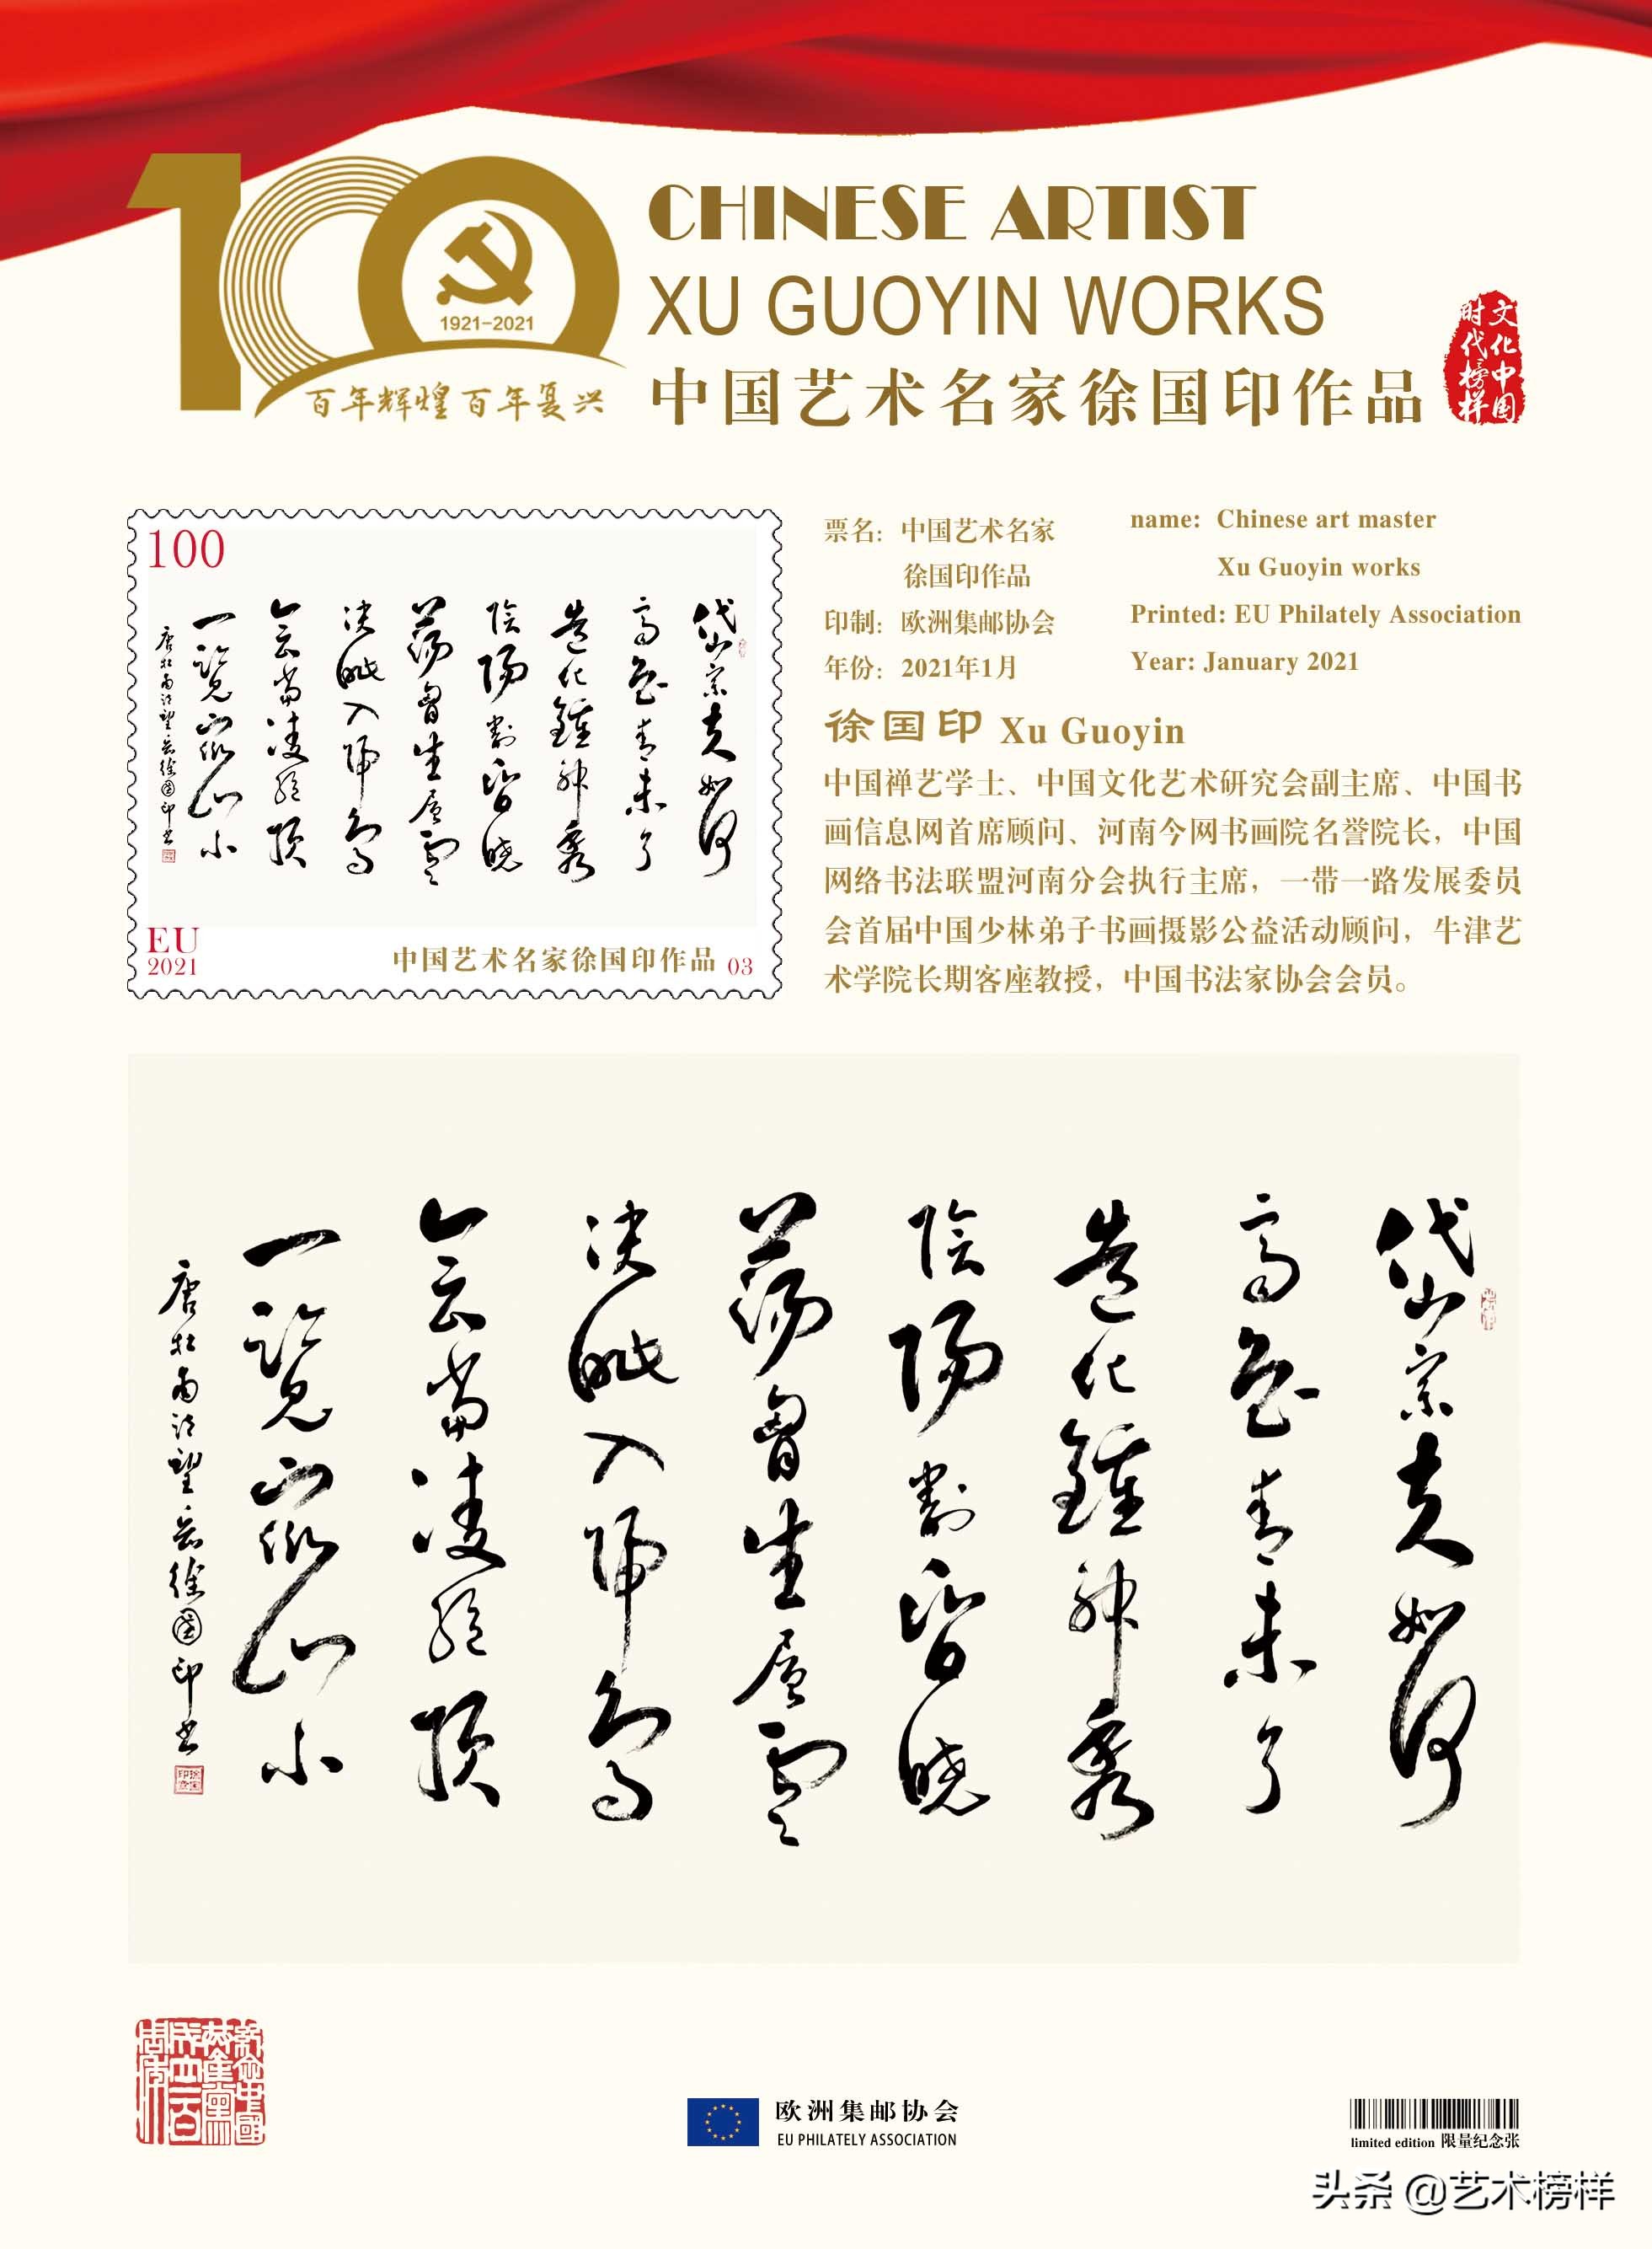 1921-2021
百年辉煌 百年复兴
CHINESE ARTIST
XU GUOYIN WORKS
中国艺术名家徐国印作品
文化中国
时代榜样
100
岱宗夫如何
齐鲁青未了
造化鍾神秀
陰陽割昏曉
蕩胸生層雲
決眦入歸鳥
会當凌絕頂
一覽众山小
唐杜甫詩望岳徐國印书
EU
2021
中国艺术名家徐国印作品 03
票名：中国艺术名家
徐国印作品
印制：欧洲集邮协会
年份：2021年1月
name: Chinese art master
Xu Guoyin works
Printed: EU Philately Association
Year: January 2021
徐国印 Xu Guoyin
中国禅艺学士、中国文化艺术研究会副主席、中国书
画信息网首席顾问、河南今网书画院名誉院长，中国
网络书法联盟河南分会执行主席，一带一路发展委员
会首届中国少林弟子书画摄影公益活动顾问，牛津艺
术学院长期客座教授，中国书法家协会会员。
岱宗夫如何
齐鲁青未了
造化鍾神秀
陰陽割昏曉
蕩胸生層雲
決眦入歸鳥
会當凌絕頂
一覽众山小
唐杜甫詩望岳徐國印书
欧洲集邮协会
EU PHILATELY ASSOCIATION
limited edition 限量纪念张
头条 @艺术榜样